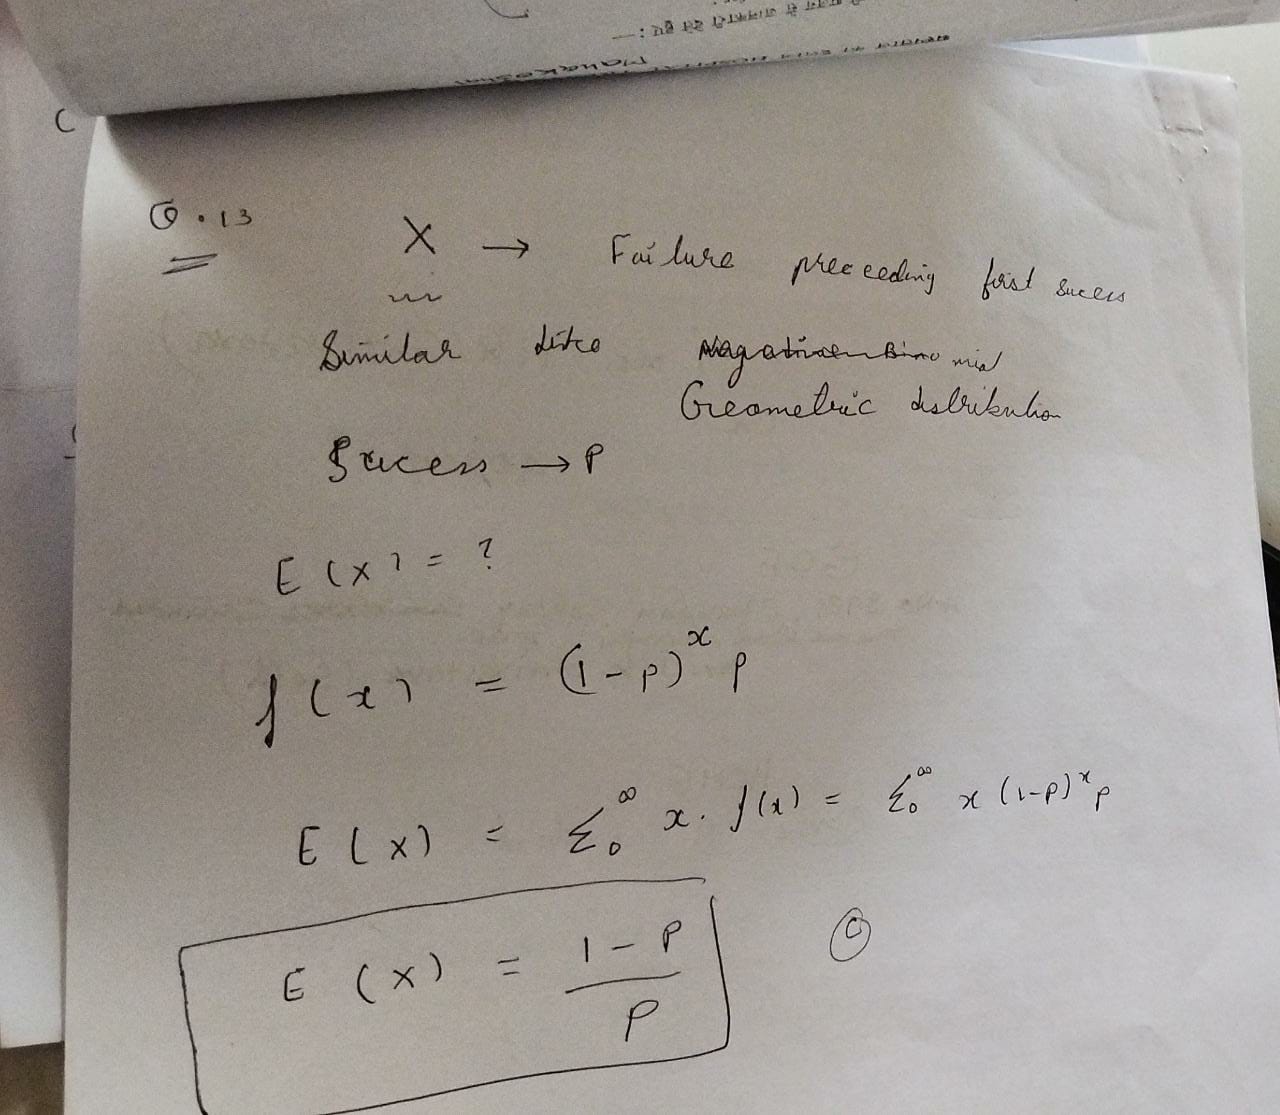 Q.13
X → Failure preceeding first sucess
Similar
Negative Binomial
Geometric distribution
Sucess → P
E(X) = ?
f(x) = (1-p)^x p
E(X) = Σ₀^∞ x. f(x) = Σ₀^∞ x (1-p)^x p
E(X) = (1-P)/P
C